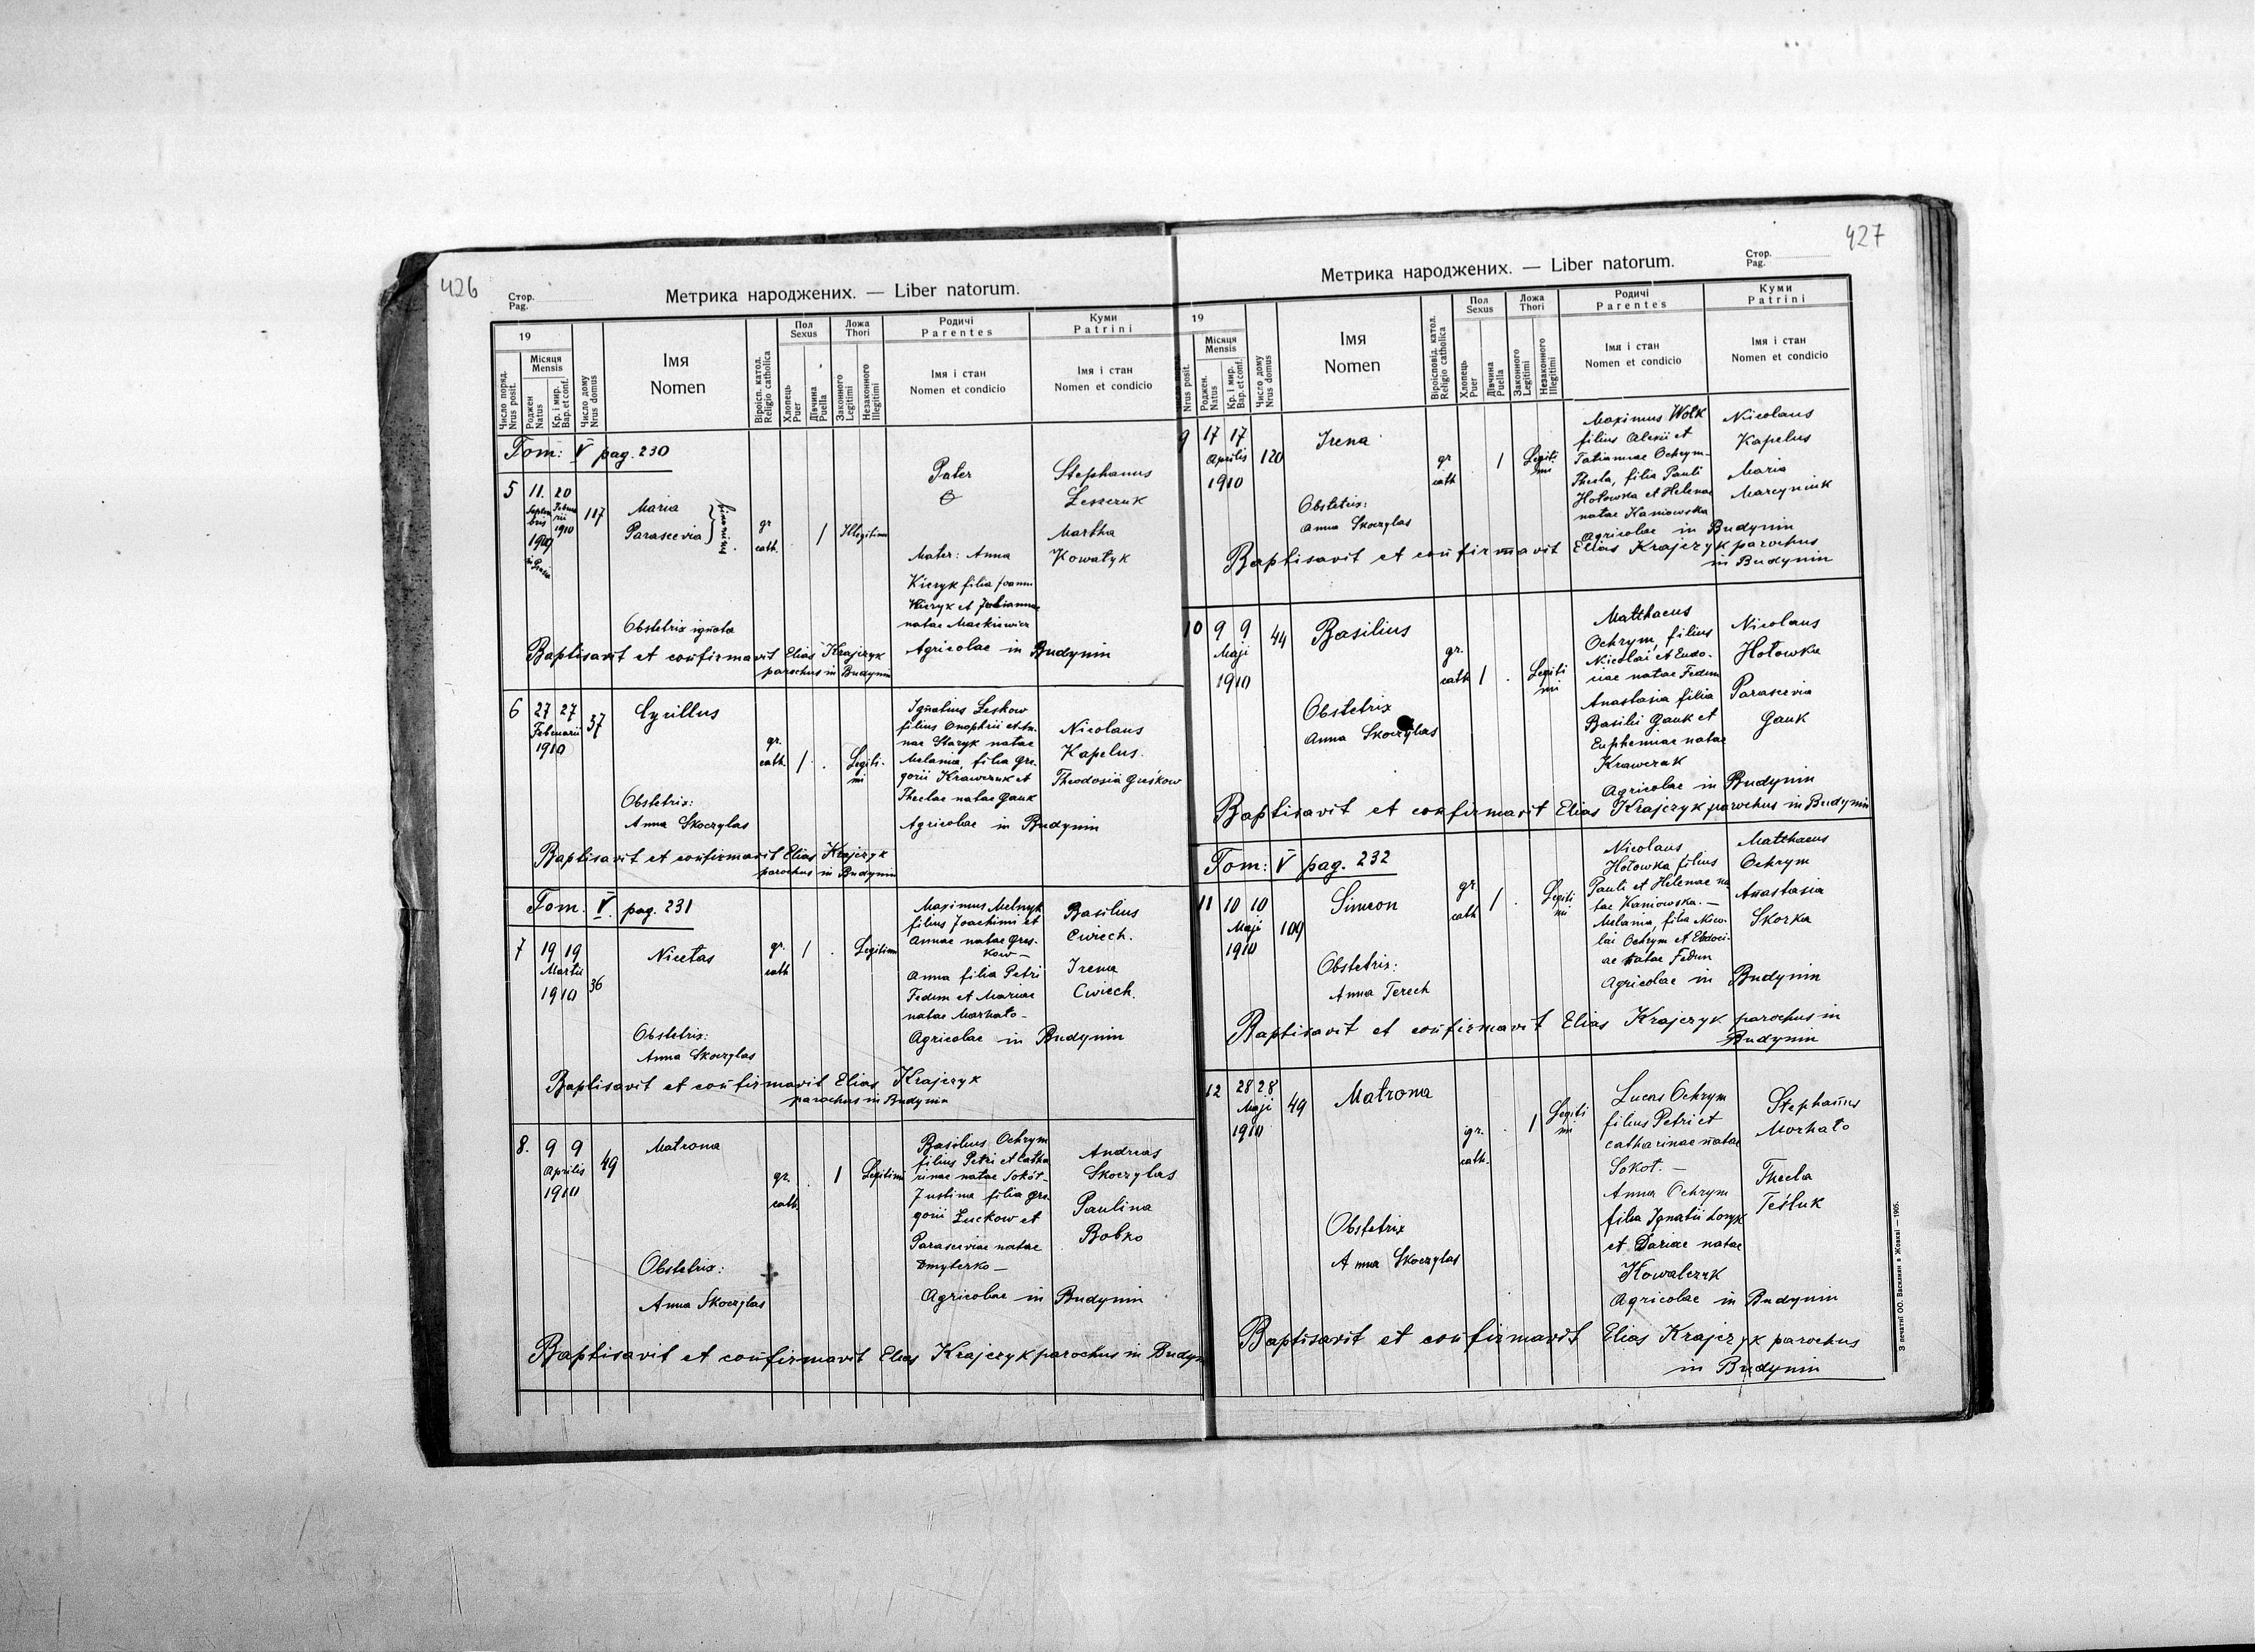 426
Стор.
Pag.
Метрика народжених. — Liber natorum.
19
Число поряд.
Nrus posit.
Місяця
Mensis
Роджен
Natus
Кр. і мир.
Bap. et conf.
Число дому
Nrus domus
Імя
Nomen
Віроісп. катол.
Religio catholica
Пол
Sexus
Хлопець
Puer
Дівчина
Puella
Ложа
Thori
Законного
Legitimi
Незаконного
Illegitimi
Родичі
Parentes
Імя і стан
Nomen et condicio
Куми
Patrini
Імя і стан
Nomen et condicio
Tom: V pag. 230
5 11. 20
Septem
bris
1909
Febru
arii
1910
117
Maria
Parascevia
gr
cath.
/ Illegitimi
Pater
Mater: Anna
Kieryk filia Joannis
Kieryk et Juliannae
natae Mackiewicz
Agricolae in Budynin
Stephanus
Leszczuk
Martha
Kowałyk
Obstetrix ignota
Baptisavit et confirmavit Elias Krajczyk
parochus in Budynin
6 27 27
Februarii
1910
37
Cyrillus
gr.
cath.
/ . Legiti-
mi
Ignatius Leskow
filius Onophrii et An-
nae Staryk natae
Melania, filia Gre-
gorii Krawczuk et
Theclae natae Gauk
Agricolae in Budynin
Nicolaus
Kapelus.
Theodosia Greśkow
Obstetrix:
Anna Skoczylas
Baptisavit et confirmavit Elias Krajczyk
parochus in Budynin
Tom. V. pag. 231
7 19 19
Martii
1910
36
Nicetas
gr.
cath
/ . Legitimi
Maximus Melnyk
filius Joachimi et
Annae natae Gres-
kow —
Anna filia Petri
Fedun et Mariae
natae Marhato-
Agricolae in Budynin
Basilius
Cwiech.
Irena
Cwiech.
Obstetrix:
Anna Skoczylas
Baptisavit et confirmavit Elias Krajczyk
parochus in Budynin
8. 9 9
Aprilis
1910
49
Matrona
gr.
cath
. 1 Legitimi
Basilius Ochrym
filius Petri et Catha
rinae natae Sokół-
Justina filia Gre-
gorii Łuckow et
Parasceviae natae
Dmyterko —
Agricolae in Budynin
Andreas
Skoczylas
Paulina
Bobko
Obstetrix:
Anna Skoczylas
Baptisavit et confirmavit Elias Krajczyk parochus in Budyn
427
Стор.
Pag.
Метрика народжених. — Liber natorum.
19
Nrus posit.
Місяця
Mensis
Роджен.
Natus
Кр. і мир.
Bap. et conf.
Число дому
Nrus domus
Імя
Nomen
Віроісповід. катол.
Religio catholica
Пол
Sexus
Хлопець
Puer
Дівчина
Puella
Ложа
Thori
Законного
Legitimi
Незаконного
Illegitimi
Родичі
Parentes
Імя і стан
Nomen et condicio
Куми
Patrini
Імя і стан
Nomen et condicio
9 17 17
Aprilis
1910
120
Irena
gr
cath
. 1 Legiti
mi
Maximus Wołk
filius Alexii et
Tatiannae Ochrym-
Thecla, filia Pauli
Hołowka et Helenae
natae Kaniowska
Agricolae in Budynin
Nicolaus
Kapelus
Maria
Marcyniuk
Obstetrix:
Anna Skoczylas
Baptisavit et confirmavit Elias Krajczyk parochus
in Budynin
10 9 9
Maji
1910
44
Basilius
gr.
cath
/ . Legiti
mi
Matthaeus
Ochrym, filius
Nicolai et Eudo-
ciae natae Fedun
Anastasia filia
Basilii Gauk et
Eupheniae natae
Krawczak
Agricolae in Budynin
Nicolaus
Hołowka
Parascevia
Gauk
Obstetrix
Anna Skoczylas
Baptisavit et confirmavit Elias Krajczyk parochus in Budynin
Tom: V pag. 232
11 10 10
Maji
1910
109
Simeon
gr.
cath
/ . Legiti
mi
Nicolaus
Hołowka filius
Pauli et Helenae na
tae Kaniowska. —
Melania, filia Nico-
lai Ochrym et Eudoci-
ae natae Fedun
Agricolae in Budynin
Matthaeus
Ochrym
Anastasia
Skorka
Obstetrix:
Anna Terech
Baptisavit et confirmavit Elias Krajczyk parochus in
Budynin
12 28 28
Maji
1910
49
Matrona
gr.
cath.
. 1 Legiti
mi
Lucas Ochrym
filius Petri et
Catharinae natae
Sokoł. —
Anna Ochrym
filia Ignatii Łoryk
et Dariae natae
Kowalczuk
Agricolae in Budynin
Stephanus
Morhato
Thecla
Teśluk
Obstetrix
Anna Skoczylas
Baptisavit et confirmavit Elias Krajczyk parochus
in Budynin
З печатні ОО. Василиян в Жовкві — 1905.